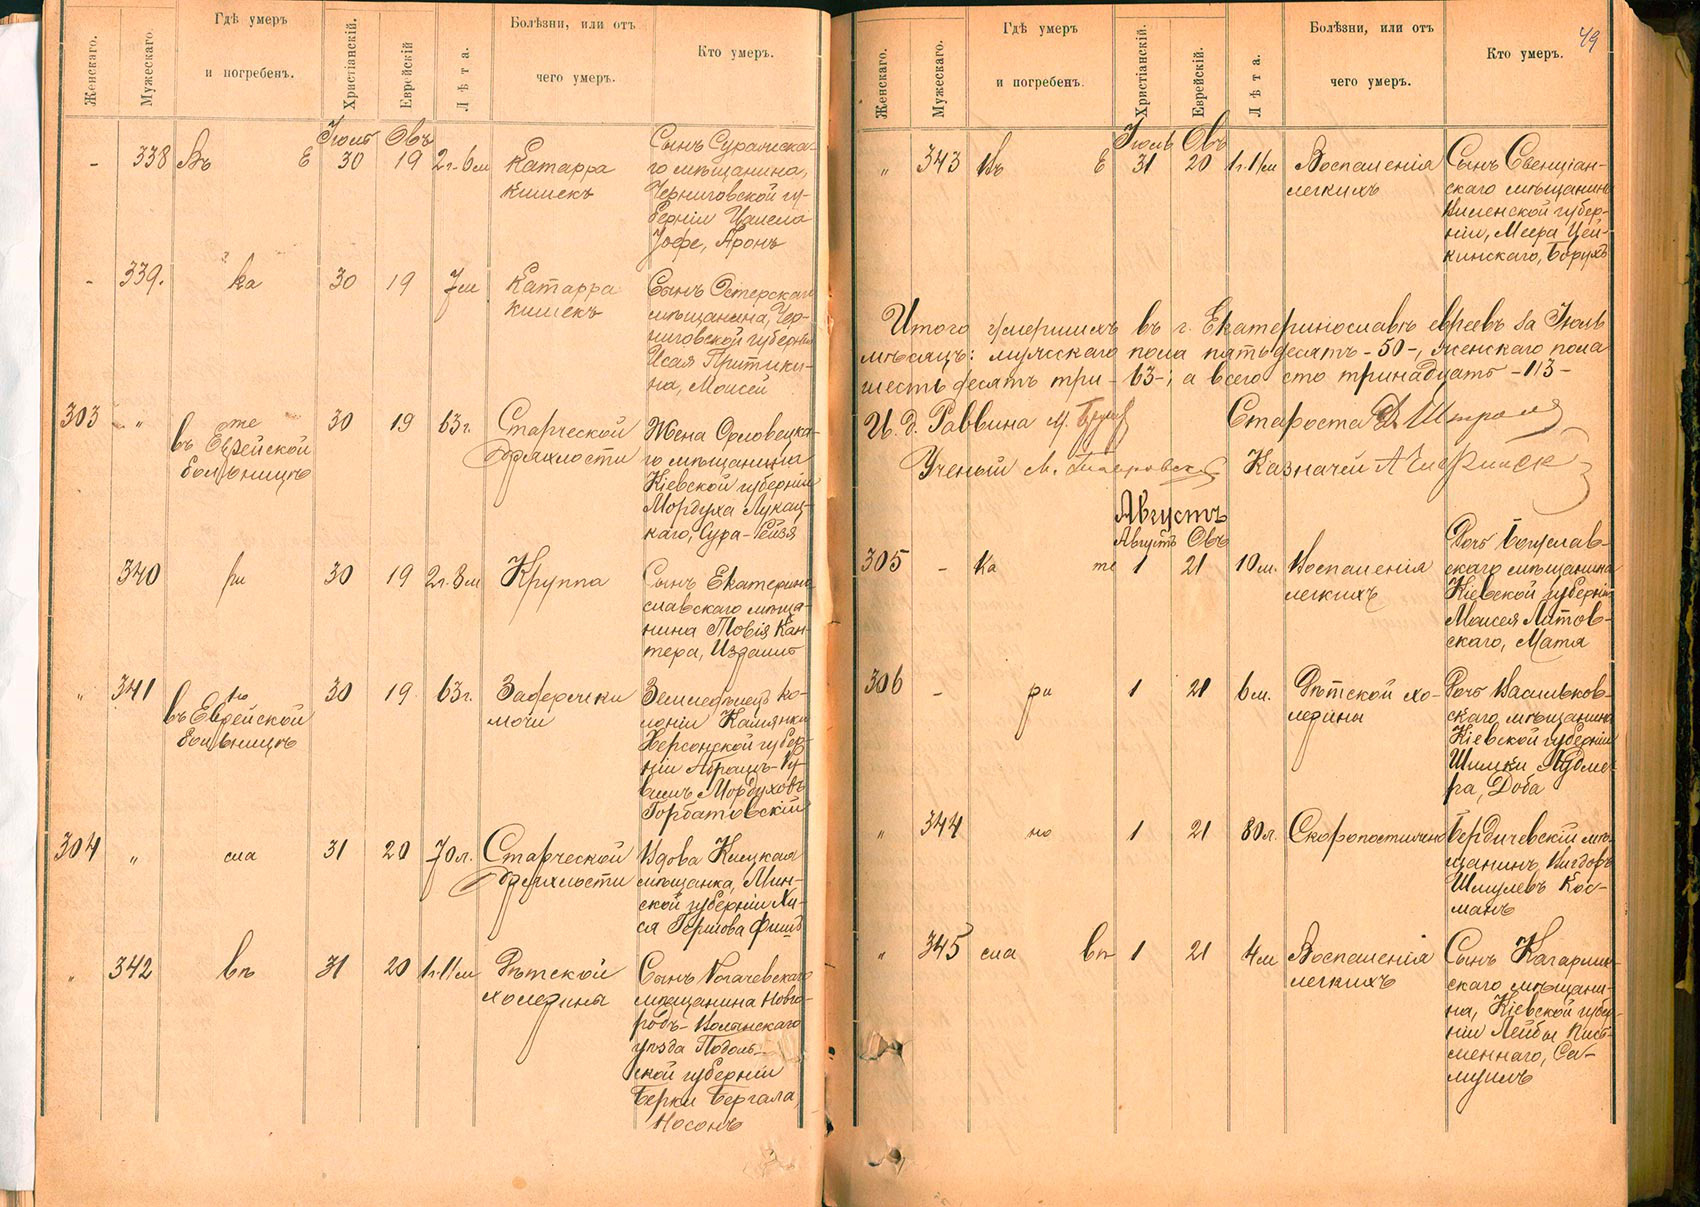 Женскаго.
Мужескаго.
Гдѣ умеръ
и погребенъ.
Христіанскій.
Еврейскій
Лѣта.
Болѣзни, или отъ
чего умеръ.
Кто умеръ.
Іюль Овъ
- 338 Въ Е 30 19 2г. 6м
Катарра
кишекъ
Сынъ Суражска-
го мѣщанина,
Черниговской гу-
берніи
Іофе, Аронъ
- 339. ка 30 19 7м
Катарра
кишекъ
Сынъ Остерскаго
мѣщанина, Чер-
ниговской губерніи
Исая Притыки-
на, Моисей
303 „ те 30 19 63г.
въ Еврейской
больницѣ
Старческой
дряхлости
Жена Орловецка-
го мѣщанина
Кіевской губерніи
Мордуха Лукац-
каго, Сура-Рейзя
340 ри 30 19 2г. 8м
Круппа
Сынъ Екатерино-
славскаго мѣща-
нина Товія Кан-
тера, Издаиль
„ 341 но 30 19 63г.
въ Еврейской
больницѣ
Задержки
мочи
Земледѣлецъ ко-
лоніи Каменки
Херсонской губер-
ніи Абрамъ-
Мордуховъ
Горбатовскій
304 „ сла 31 20 70л.
Старческой
дряхлости
Вдова
мѣщанка, Мин-
ской губерніи Ха-
ся Гершова Фишъ
„ 342 вѣ 31 20 1г. 11м
Дѣтской
холерины
Сынъ Рогачевскаго
мѣщанина Новго-
родъ-Волынскаго
уѣзда Подоль-
ской губерніи
Берки Бергала,
Носонъ
49
Женскаго.
Мужескаго.
Гдѣ умеръ
и погребенъ.
Христіанскій.
Еврейскій.
Лѣта.
Болѣзни, или отъ
чего умеръ.
Кто умеръ.
Іюль Овъ
„ 343 Въ Е 31 20 1г. 11м
Воспаленія
легкихъ
Сынъ Свенціан-
скаго мѣщанина
Виленской губер-
ніи, Меера Цей-
кинскаго, Борухъ
Итого умершихъ въ г. Екатеринославѣ евреевъ за Іюль
мѣсяцъ: мужскаго пола пятьдесятъ -50-, женскаго пола
шестьдесятъ три -63-; а всего сто тринадцать -113-
И. д. Раввина М.
Староста
Ученый М.
Казначей А
Августъ
Августъ Овъ
305 - ка те 1 21 10м.
Воспаленія
легкихъ
Дочь Богуслав-
скаго мѣщанина
Кіевской губерніи
Моисея Литов-
скаго, Матя
306 - ри 1 21 6м.
Дѣтской хо-
лерины
Дочь Васильков-
скаго мѣщанина
Кіевской губерніи
Шимки
ра, Доба
„ 344 но 1 21 80л.
Скоропостижно
Бердичевскій мѣ-
щанинъ Вигдоръ
Шмулевъ Кос-
манъ
„ 345 сла вѣ 1 21 4м
Воспаленія
легкихъ
Сынъ Кагарлык-
скаго мѣщани-
на, Кіевской губер-
ніи Лейбы Пись-
меннаго, Са-
муилъ